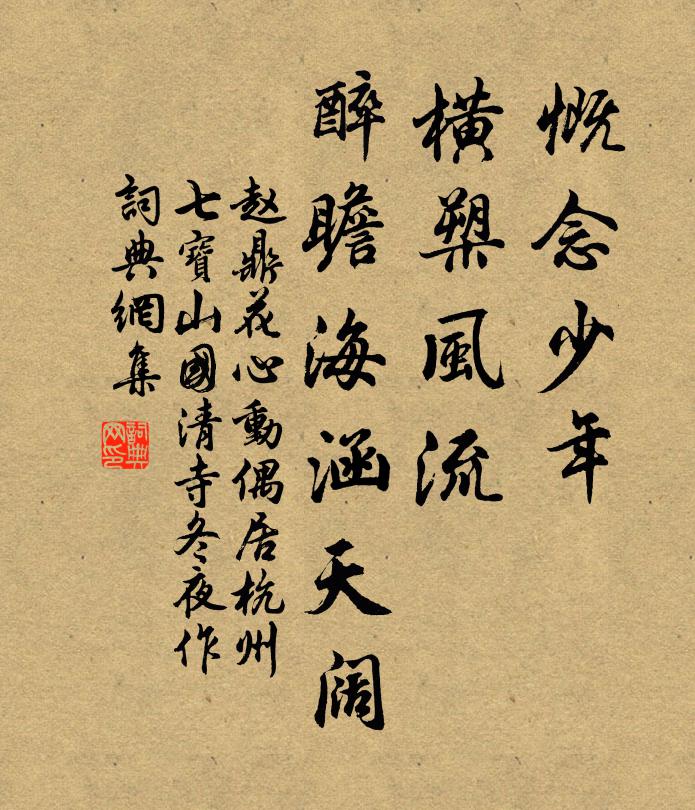 慨念少年
橫槊風流
醉瞻海涵天阔
赵鼎花心動偶居杭州
七寶山國清寺冬夜作
詞典網集
詞典网印